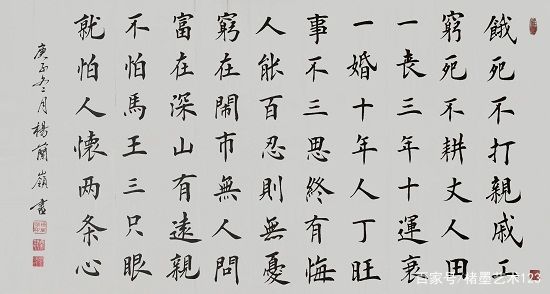 餓死不打親戚工
窮死不耕丈人田
一喪三年十運衰
一婚十年人丁旺
事不三思終有悔
人能百忍則無憂
窮在鬧市無人問
富在深山有遠親
不怕馬王三只眼
就怕人懷两条心
庚子冬月楊蘭嶺書
百家号/楮墨艺术123